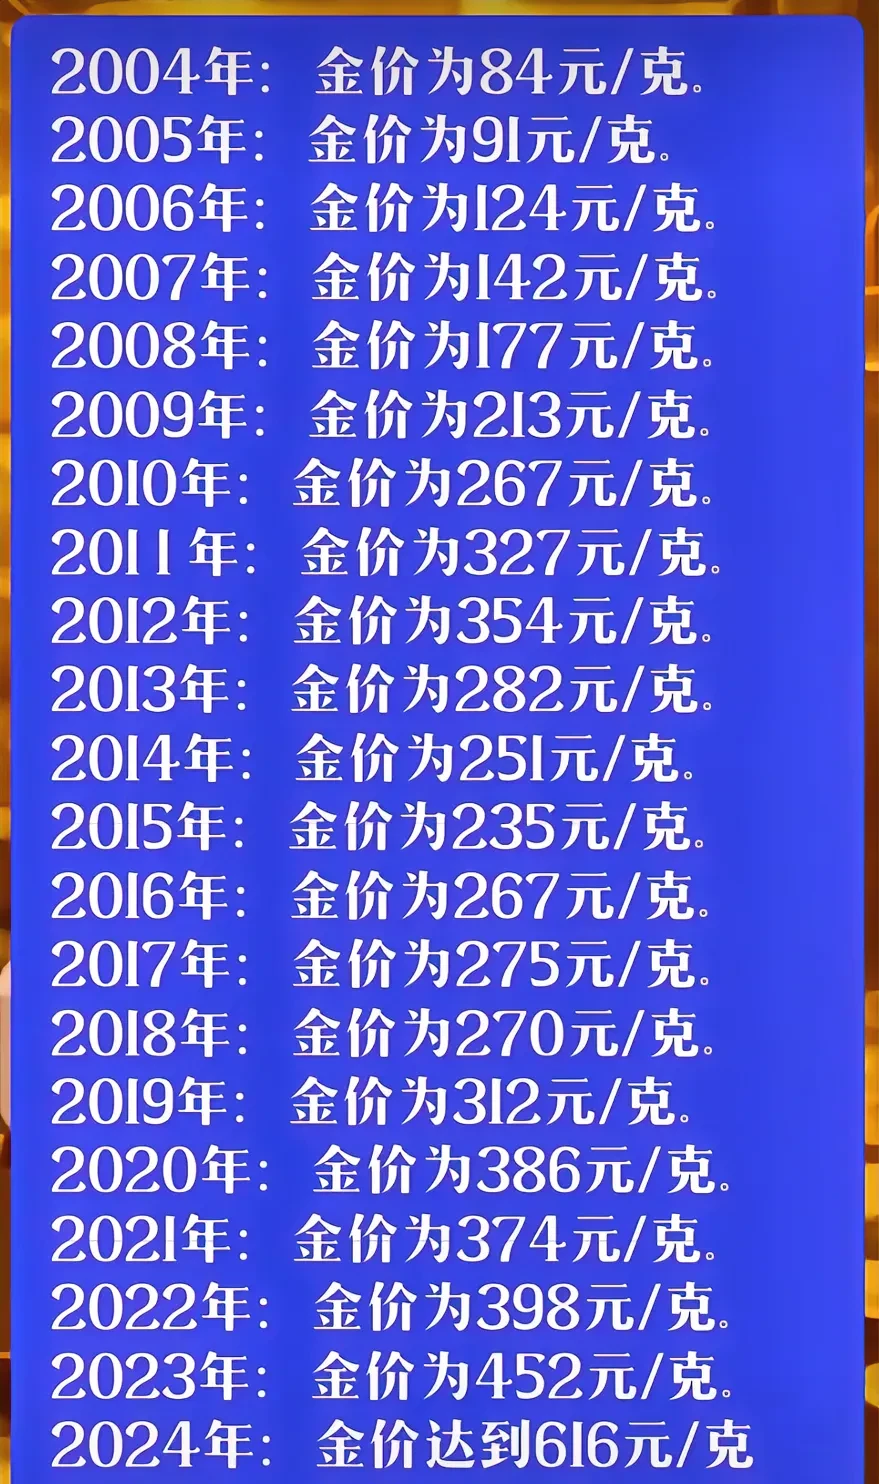 2004年：金价为84元/克。
2005年：金价为91元/克。
2006年：金价为124元/克。
2007年：金价为142元/克。
2008年：金价为177元/克。
2009年：金价为213元/克。
2010年：金价为267元/克。
2011年：金价为327元/克。
2012年：金价为354元/克。
2013年：金价为282元/克。
2014年：金价为251元/克。
2015年：金价为235元/克。
2016年：金价为267元/克。
2017年：金价为275元/克。
2018年：金价为270元/克。
2019年：金价为312元/克。
2020年：金价为386元/克。
2021年：金价为374元/克。
2022年：金价为398元/克。
2023年：金价为452元/克。
2024年：金价达到616元/克